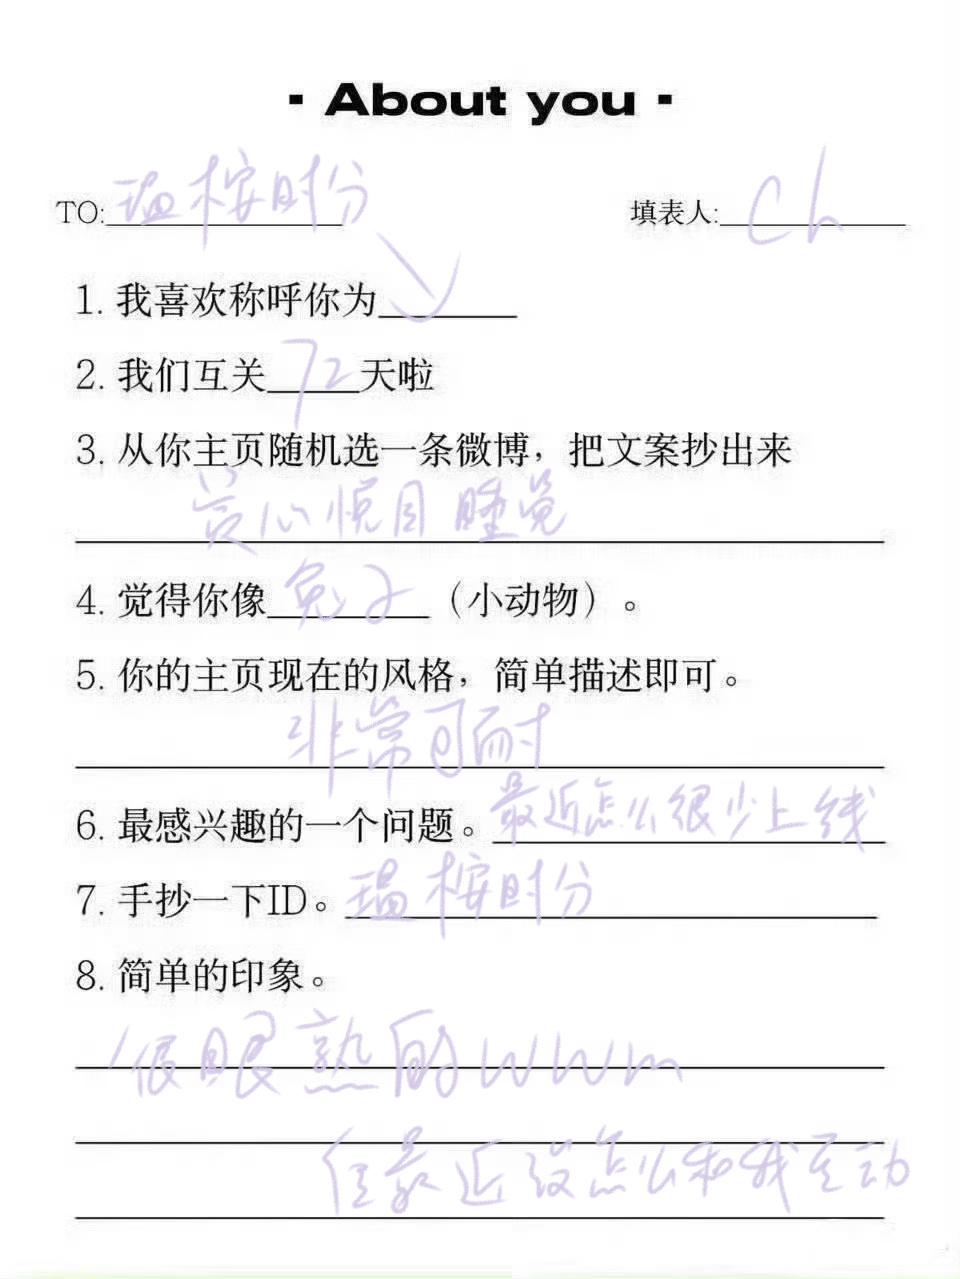 - About you -
TO: 瑥桉时分 填表人: Ch
1. 我喜欢称呼你为
2. 我们互关72天啦
3. 从你主页随机选一条微博，把文案抄出来
赏心悦目 睡觉
4. 觉得你像兔子（小动物）。
5. 你的主页现在的风格，简单描述即可。
非常可耐
6. 最感兴趣的一个问题。最近怎么很少上线
7. 手抄一下ID。瑥桉时分
8. 简单的印象。
很眼熟的wwm
但最近没怎么和我互动